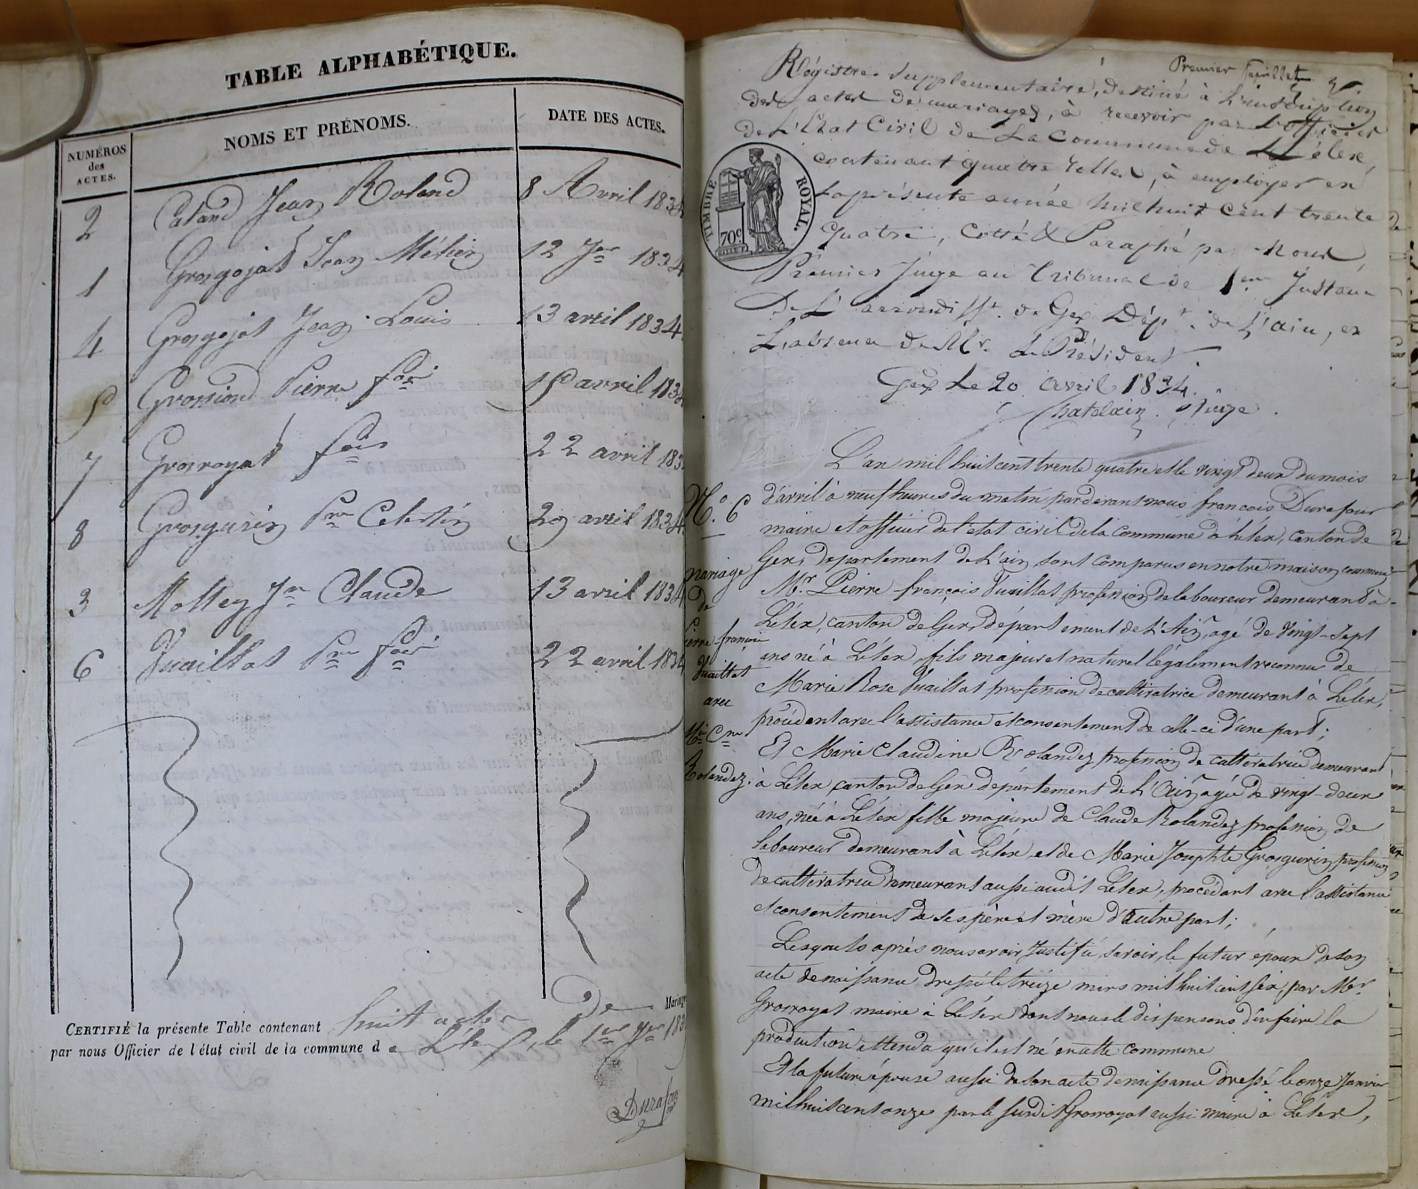 TABLE ALPHABÉTIQUE.
NUMÉROS des ACTES.
NOMS ET PRÉNOMS.
DATE DES ACTES.
2 Caland Jean Roland 8 Avril 1834
1 Grosgojat Jean Mélier 12 Jer 1834
4 Grosgojat Jean Louis 13 avril 1834.
5 Grossiord Pierre fois 15 avril 1834
7 Grosroyat fois 22 avril 183
8 Grosgurin Pre Celestin 29 avril 1834
3 Molley Jn Claude 13 avril 1834
6 Vuaillat Pre fois 22 avril 1834
CERTIFIÉ la présente Table contenant huit actes de Mariage
par nous Officier de l'état civil de la commune de Lélex, le 1er Jer 183
Durafour
Premier feuillet
Régistre Supplementaire, Destiné à l'inscription
des actes de mariages, à recevoir par L'officier
de L'Etat Civil de La Commune de Lélex,
contenant quatre feuilles, à employer en
La présente année mil huit cent trente
quatre, Cotté & Paraphé par Nous
Premier Juge au Tribunal de 1ère Instance
De L'arrondisst. de Gex Dépt. de L'ain, en
L'absence de Mr. Le Président
Gex Le 20 avril 1834.
Chatelain, Juge.
TIMBRE ROYAL.
70c
L'an mil huit cent trente quatre et le vingt deux du mois
d'avril à neuf heures du matin par devant nous francois Durafour
maire et officier de l'état civil de la commune de Lélex, canton de
Gex, departement de L'ain, sont comparus en notre maison commune
Mr. Pierre françois Vuaillat profession de laboureur demeurant à
Lélex, canton de Gex, départ ement de L'Ain, agé de vingt-sept
ans né à Lélex, fils majeur et naturel légalement reconnu de
Marie Rose Vuaillat profession de cultivatrice demeurant à Lélex,
procédent avec l'assistance et consentement de celle-ci d'une part;
Et Marie Claudine Rolandez profession de cultivatrice demeurant
à Lélex canton de Gex département de L'Ain, agée de vingt-deux
ans, née à Lélex fille majeure de Claude Rolandez profession de
laboureur demeurant à Lélex et de Marie Josephte Grosgurin, profession
de cultivatrice demeurant aussi audit Lélex, procédant avec l'assistance
et consentement de ses père et mère d'autre part;
Lesquels après nous avoir Justifié, savoir, le futur époux de son
acte de naissance dressé le treize mars mil huit cent six, par Mr.
Grosroyat maire à Lélex dont nous le dispensons d'en faire la
production attendu qu'il est né en cette commune
Et la future épouse aussi de son acte de naissance dressé le onze Janvier
mil huit cent onze par le susdit Grosroyat aussi maire à Lélex,
No. 6
mariage
de
Pierre françois
Vuaillat
avec
Mie Cne
Rolandez.